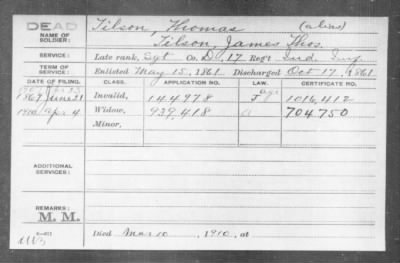 DEAD
NAME OF SOLDIER:
Tilson, Thomas (alias)
Tilson, James Thos.
SERVICE:
Late rank, Sgt Co. D, 17 Reg't Ind Inf
TERM OF SERVICE:
Enlisted May 15, 1861 Discharged Oct 17, 1861
DATE OF FILING. CLASS. APPLICATION NO. LAW. CERTIFICATE NO.
1867 June 21 Invalid, 144978 1016,412
1910 Apr 4 Widow, 939,418 704750
Minor,
ADDITIONAL SERVICES:
REMARKS:
M. M.
Died Mar 10, 1910, at